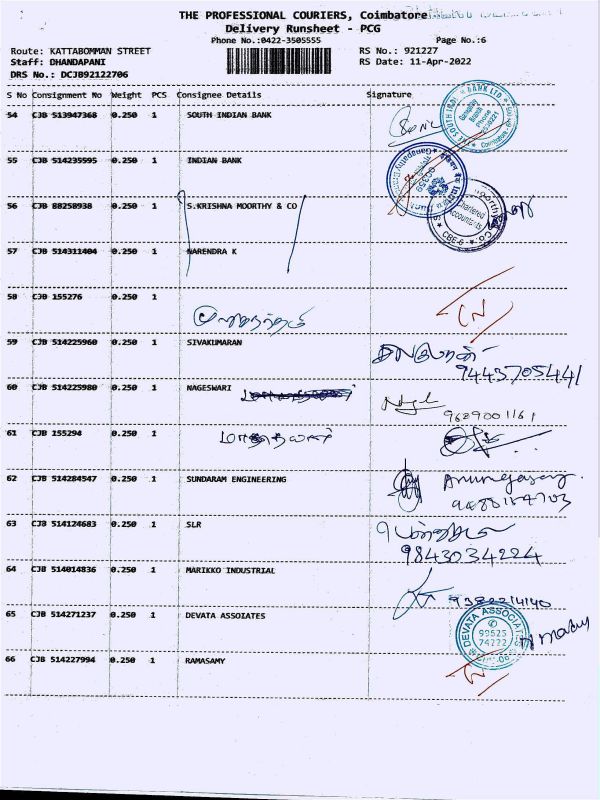 THE PROFESSIONAL COURIERS, Coimbatore
Delivery Runsheet - PCG
Phone No.:0422-3505555 Page No.:6
Route: KATTABOMMAN STREET RS No.: 921227
Staff: DHANDAPANI RS Date: 11-Apr-2022
DRS No.: DCJB92122706
S No Consignment No Weight PCS Consignee Details Signature
54 CJB 513947368 0.250 1 SOUTH INDIAN BANK
55 CJB 514235595 0.250 1 INDIAN BANK
56 CJB 88258938 0.250 1 S.KRISHNA MOORTHY & CO
Chartered
Accountants
CBE-6
57 CJB 514311404 0.250 1 NARENDRA K
58 CJB 155276 0.250 1
59 CJB 514225960 0.250 1 SIVAKUMARAN
9443705441
60 CJB 514225980 0.250 1 NAGESWARI
9689001161
61 CJB 155294 0.250 1
62 CJB 514284547 0.250 1 SUNDARAM ENGINEERING
63 CJB 514124683 0.250 1 SLR
9843034224
64 CJB 514014836 0.250 1 MARIKKO INDUSTRIAL
9382214140
65 CJB 514271237 0.250 1 DEVATA ASSOIATES
DEVATA ASSOCIATES
99525
74222
66 CJB 514227994 0.250 1 RAMASAMY